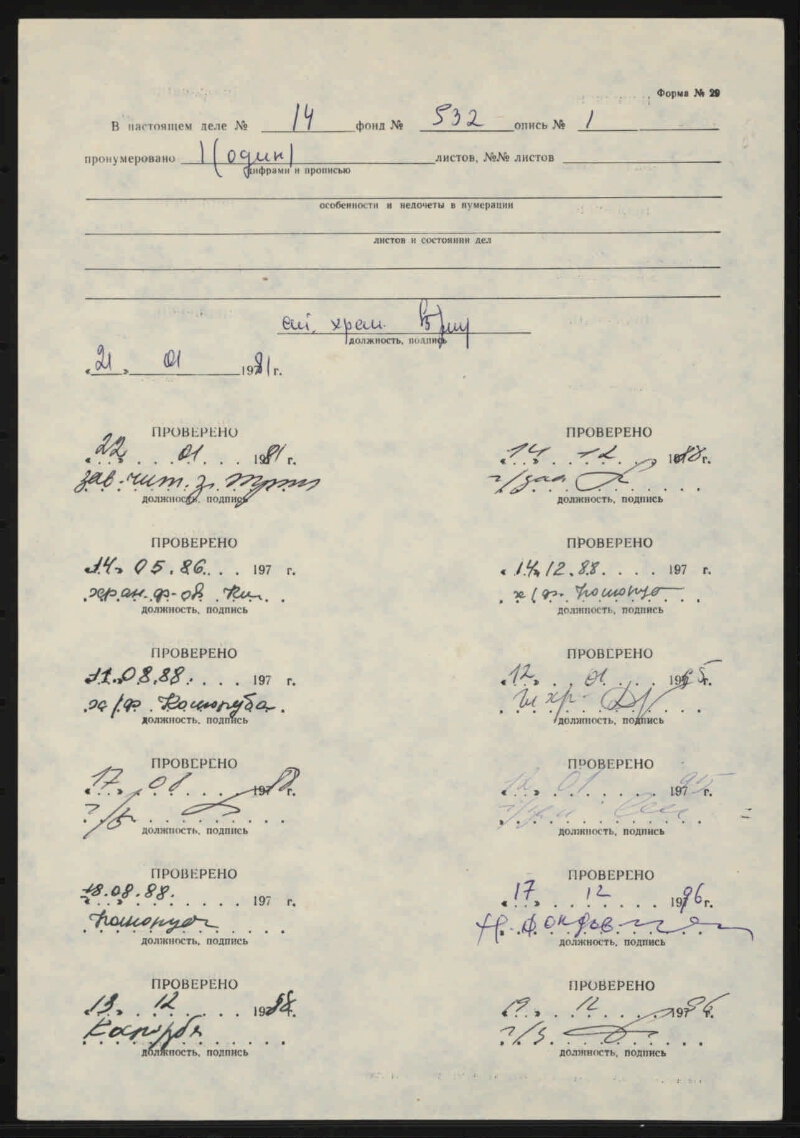 Форма № 29
В настоящем деле № 14 фонд № 532 опись № 1
пронумеровано 1 (один) листов, №№ листов
цифрами и прописью
особенности и недочеты в нумерации
листов и состоянии дел
ст. хран.
должность, подпись
« 21 » 01 1981 г.
ПРОВЕРЕНО
« 22 » 01 1981 г.
зав. чит. з.
должность, подпись
ПРОВЕРЕНО
« 14 » 05.86. 197 г.
хран. ф-ов
должность, подпись
ПРОВЕРЕНО
11.08.88. 197 г.
х/ф.
должность, подпись
ПРОВЕРЕНО
« 17 » 08 1988 г.
должность, подпись
ПРОВЕРЕНО
18.08.88. 197 г.
должность, подпись
ПРОВЕРЕНО
« 13 » 12 1988 г.
должность, подпись
ПРОВЕРЕНО
« 14 » 12 1988 г.
должность, подпись
ПРОВЕРЕНО
« 14.12.88. 197 г.
х/ф.
должность, подпись
ПРОВЕРЕНО
« 12 » 01 1995 г.
хр.
должность, подпись
ПРОВЕРЕНО
« 12 » 01 1995 г.
должность, подпись
ПРОВЕРЕНО
« 17 12 1996 г.
хр. фондов
должность, подпись
ПРОВЕРЕНО
« 19 » 12 1996 г.
должность, подпись